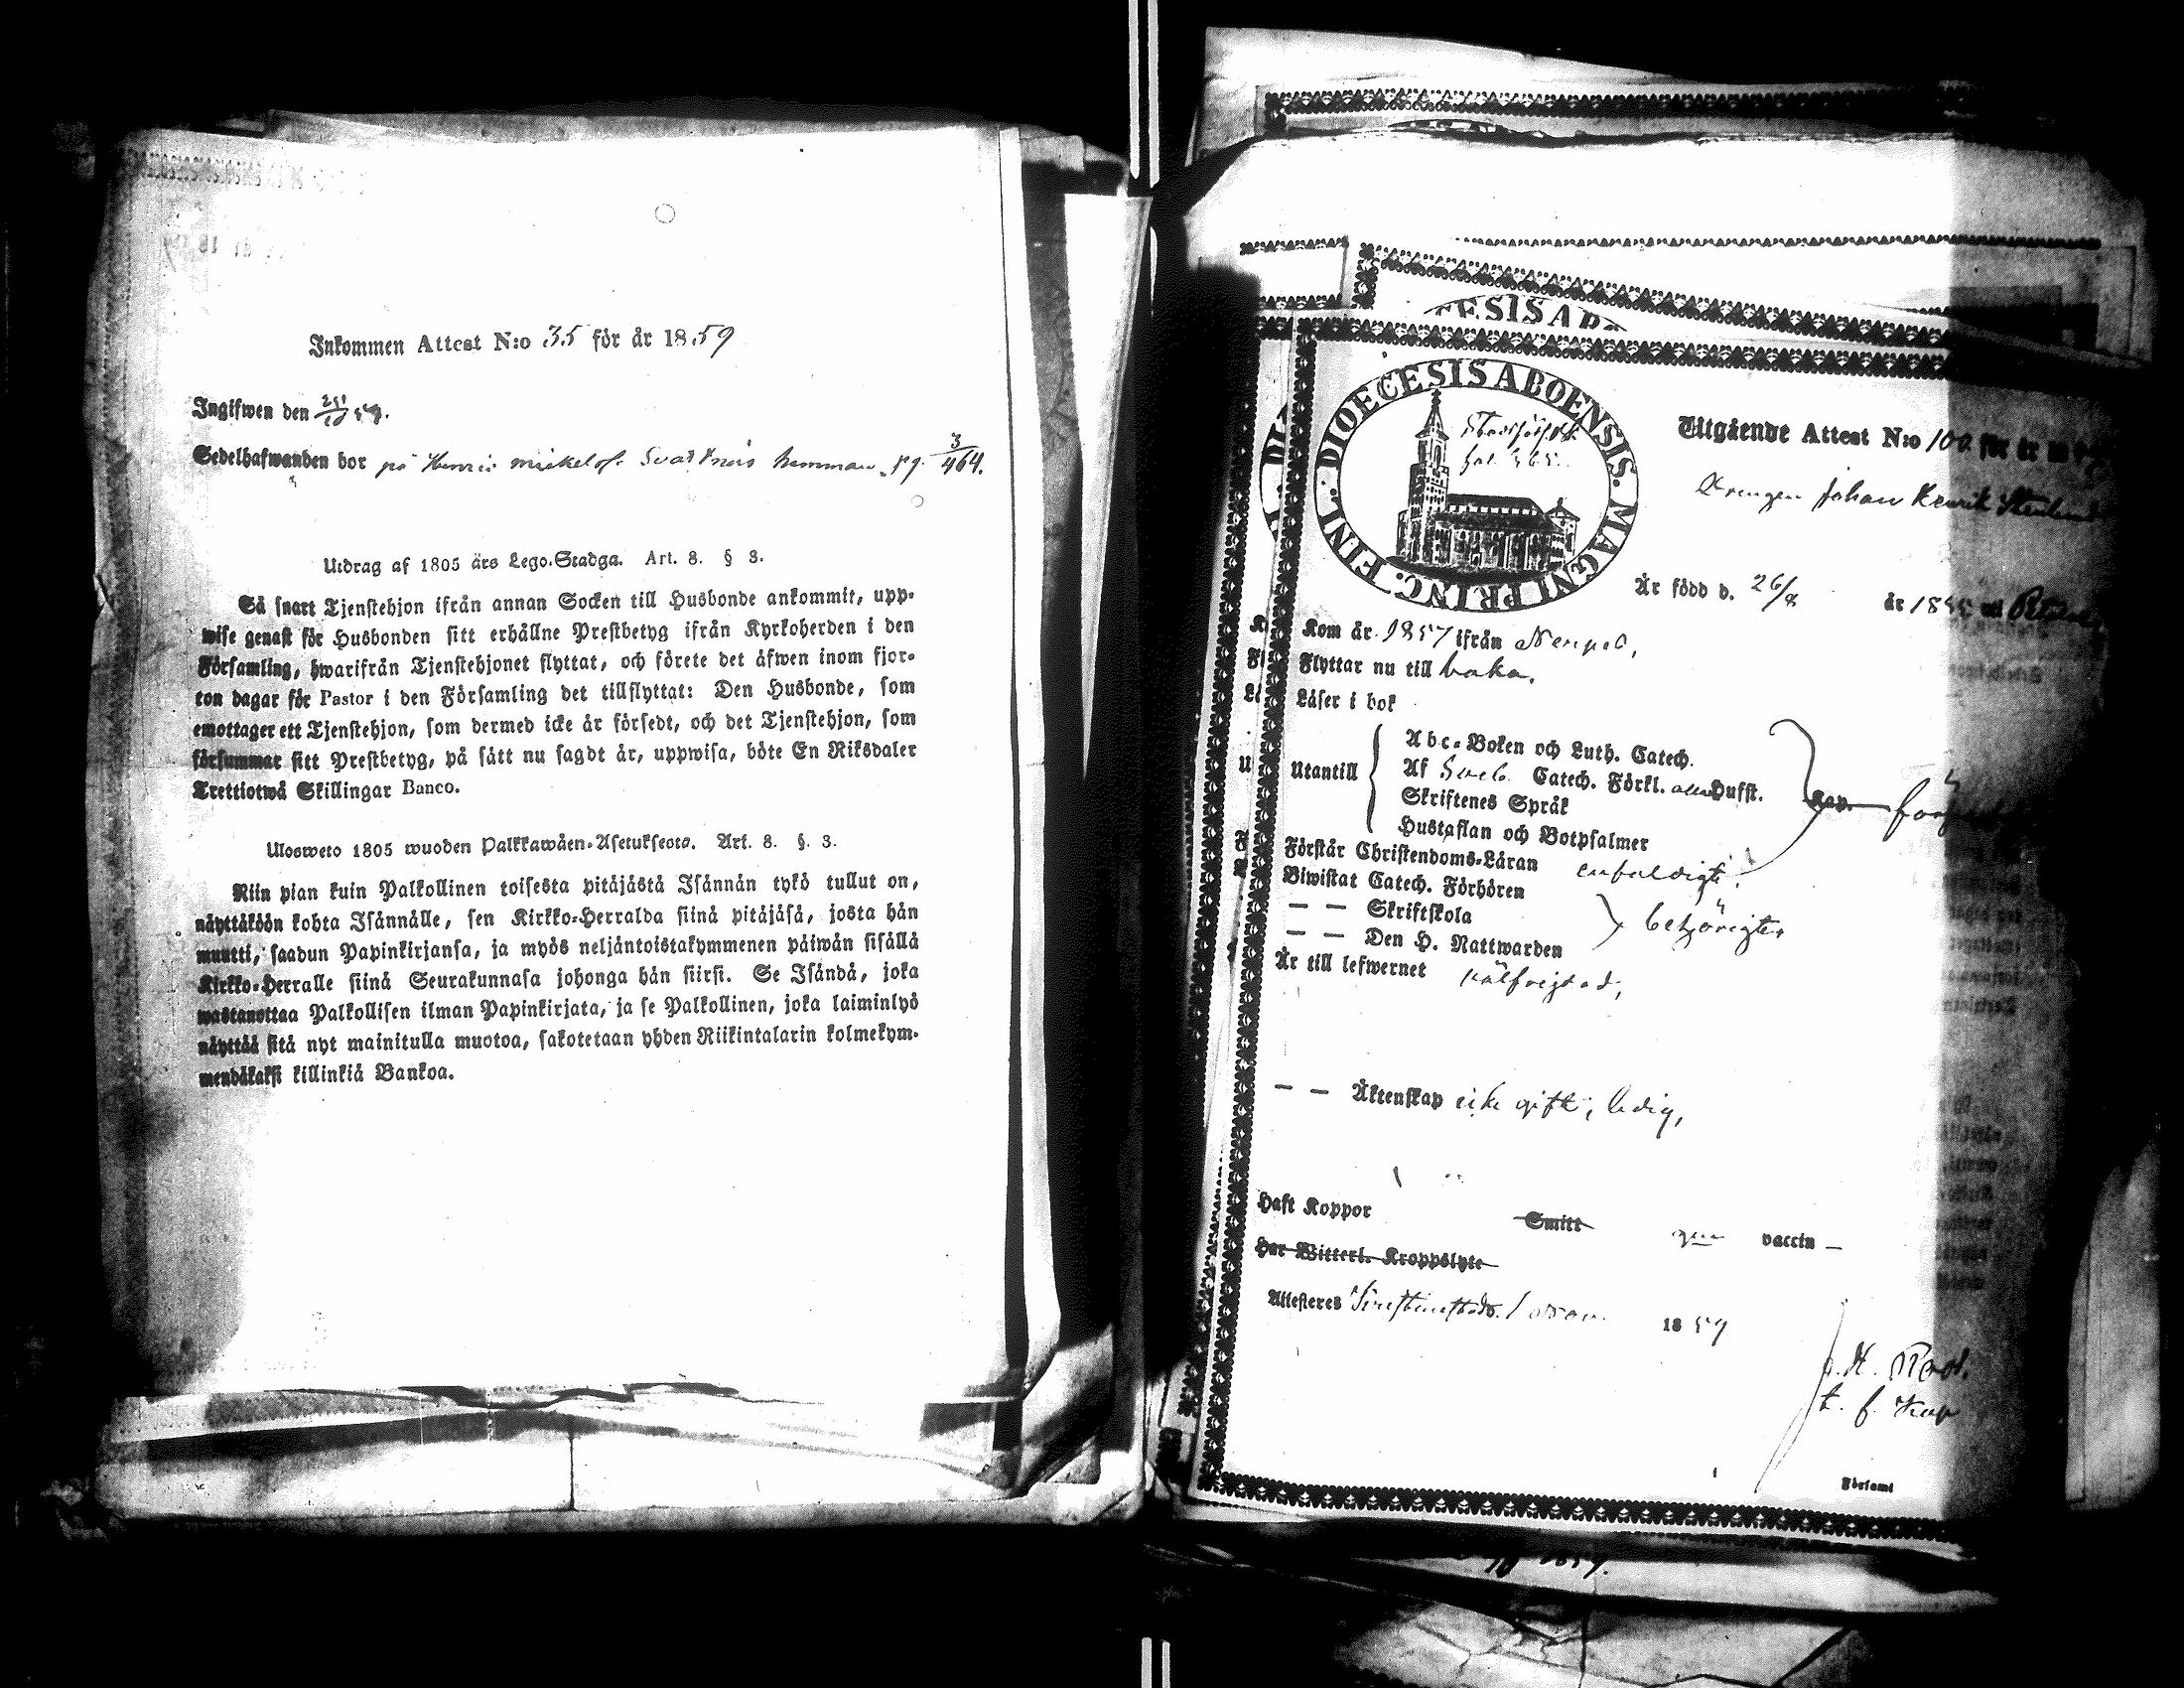 Inkommen Attest N:o 35 för år 1859
Ingifwen den
Sedelhafwanden bor på Henric Mickelss. Svartnäs hemman, pg. 3/464.
Utdrag af 1805 års Lego-Stadga. Art. 8. § 3.
Så snart Tjenstehjon ifrån annan Socken till Husbonde ankommit, upp-
wise genast för Husbonden sitt erhållne Prestbetyg ifrån Kyrkoherden i den
Församling, hwarifrån Tjenstehjonet flyttat, och förete det äfwen inom fjor-
ton dagar för Pastor i den Församling det tillflyttat: Den Husbonde, som
emottager ett Tjenstehjon, som dermed icke är försedt, och det Tjenstehjon, som
försummar sitt Prestbetyg, på sätt nu sagdt är, uppwisa, böte En Riksdaler
Trettiotwå Skillingar Banco.
Ulosweto 1805 wuoden Palkkawäen-Asetuksesta. Art. 8. §. 3.
Niin pian kuin Palkollinen toisesta pitäjästä Isännän tykö tullut on,
näyttäköön kohta Isännälle, sen Kirkko-Herralda siinä pitäjäsä, josta hän
muutti, saadun Papinkirjansa, ja myös neljäntoistakymmenen päiwän sisällä
Kirkko-Herralle siinä Seurakunnasa johonga hän siirsi. Se Isändä, joka
wastanottaa Palkollisen ilman Papinkirjata, ja se Palkollinen, joka laiminlyö
näyttää sitä nyt mainitulla muotoa, sakotetaan yhden Riikintalarin kolmekym-
mendäkaksi killinkiä Bankoa.
ESIS AB
DIOECESIS ABOENSIS. MAGNI PRINC. FINL.
fol. 365.
Utgående Attest N:o 100 för år
Drengen Johan Henrik Stenlund
Är född d. 26/8 år 1835 uti
Kom år 1857 ifrån Nerpes,
Flyttar nu till baka.
Läser i bok
Utantill
Abc-Boken och Luth. Catech.
Af Sveb. Catech. Förkl. Hufst.
Skriftenes Språk
Hustaflan och Botpsalmer
Kap.
Förstår Christendoms-Läran enfaldigt.
Biwistat Catech. Förhören
— — Skriftskola
— — Den H. Nattwarden
behörigt
Är till lefwernet välfrägdad,
— — Äktenskap icke gift, ledig,
Haft Koppor Smitt gm vaccin —
Har Witterl. Kroppslyte
Attesteres Christinestads 1859
t. f. Kap
Församl
1859.